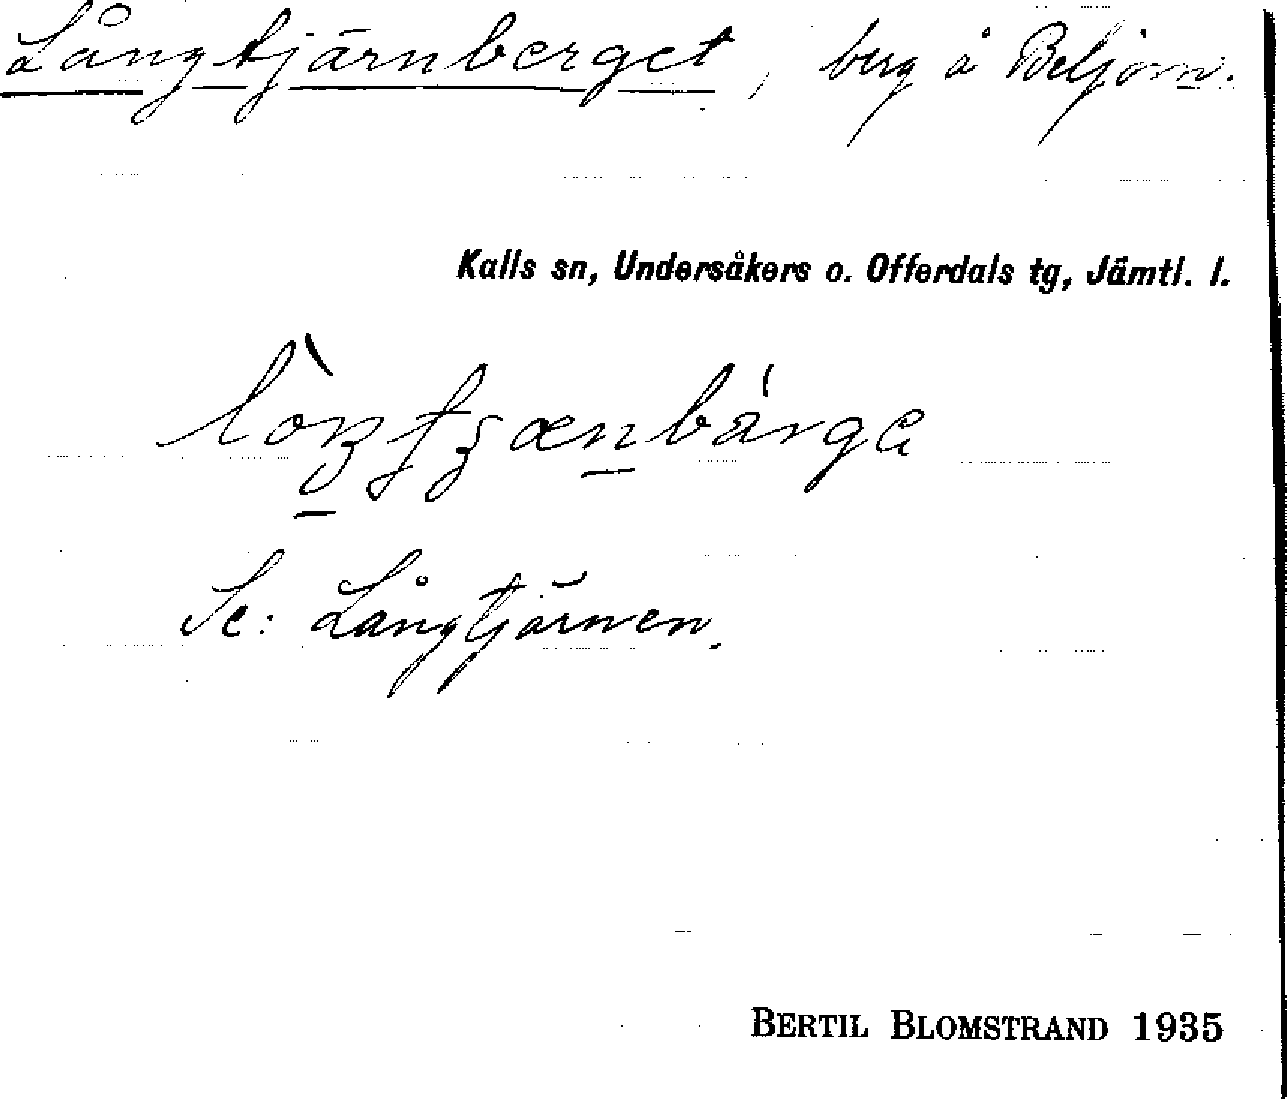 Långtjärnberget, berg å Beljom.
Kalls sn, Undersåkers o. Offerdals tg, Jämtl. l.
Se: Långtjärnen.
BERTIL BLOMSTRAND 1935